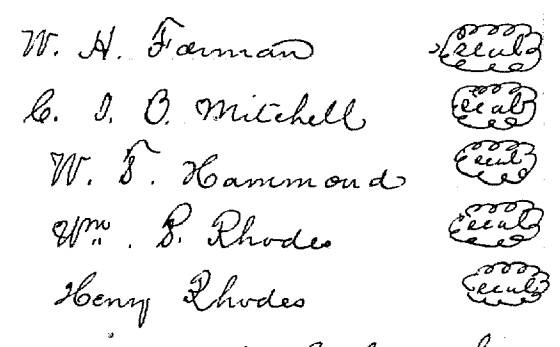 W. H. Farman seal
C. I. O. Mitchell seal
W. F. Hammond seal
Wm. B. Rhodes seal
Henry Rhodes seal